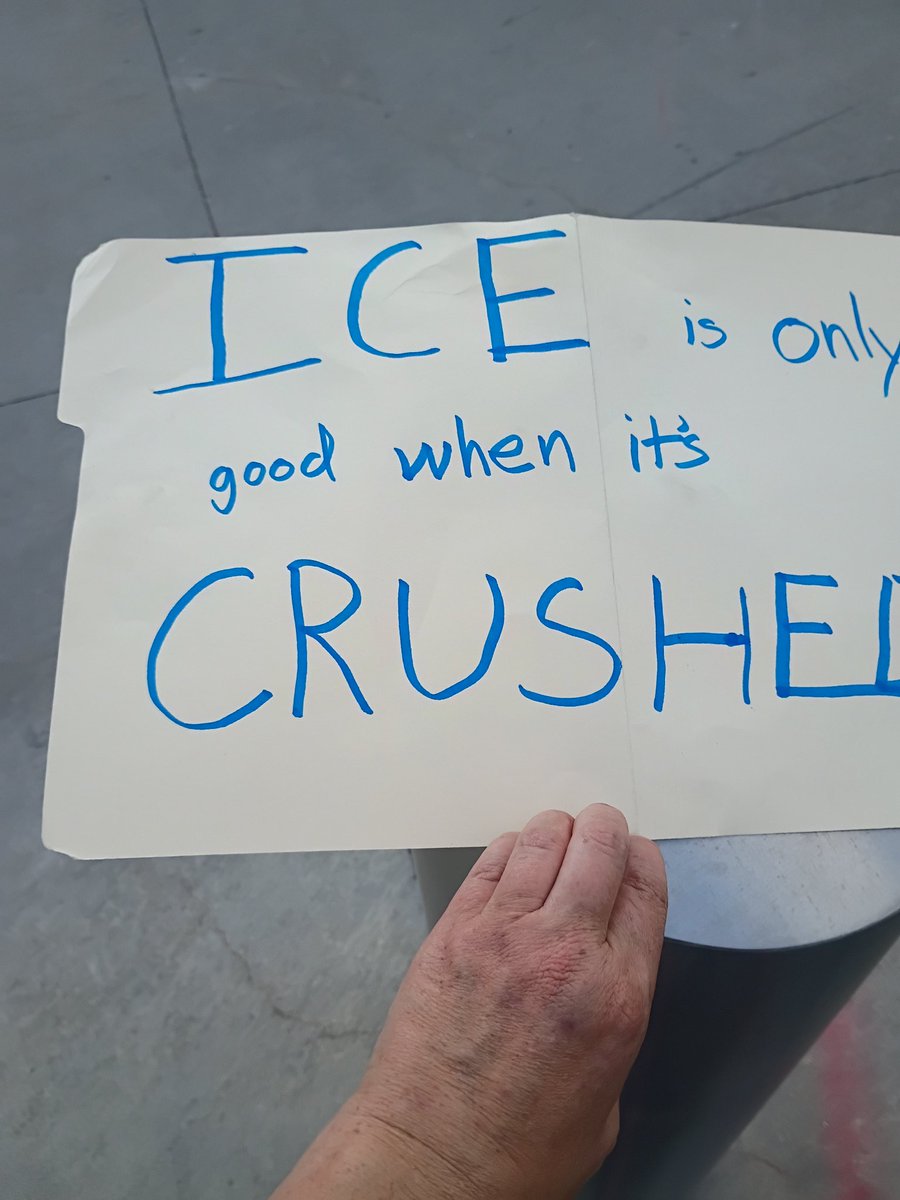 ICE is only
good when it's
CRUSHED